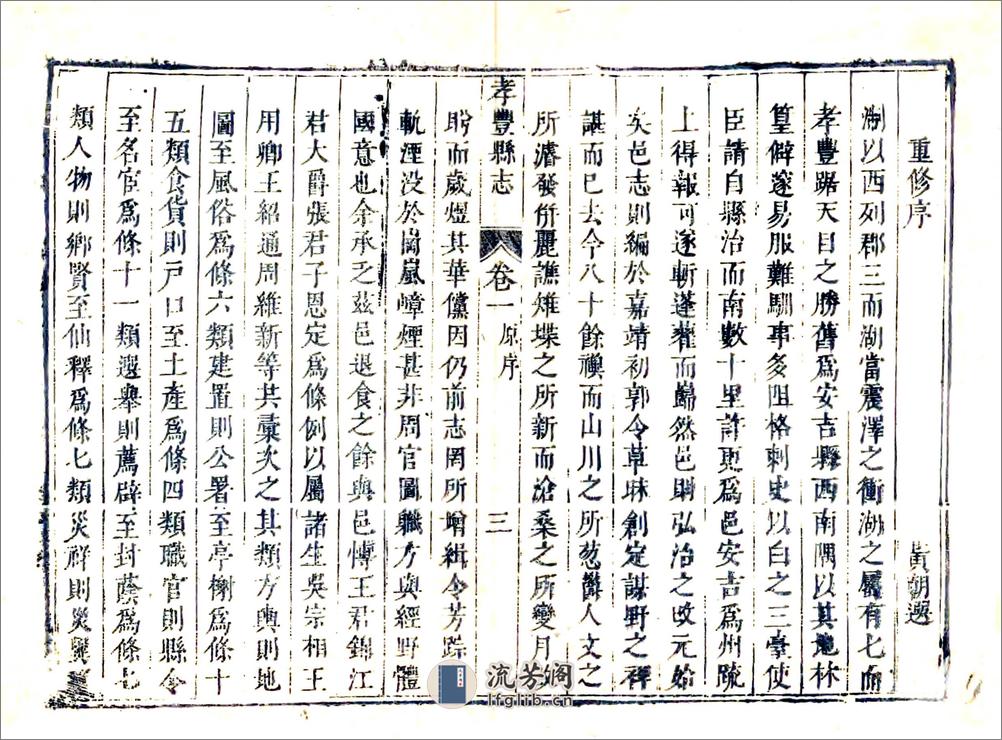 重修序 黃朝選
湖以西列郡三而湖當震澤之衝湖之屬有七而
孝豐踞天目之勝舊爲安吉縣西南隅以其地林
篁僻邃易服難馴事多阻格刺史以白之三臺使
臣請自縣治而南數十里許更爲邑安吉爲州疏
上得報可遂斬蓬藋而巋然邑則弘治之改元始
矣邑志則編於嘉靖初郭令草昧創定謀野之裨
諶而已去今八十餘禩而山川之所葱鬱人文之
所濬發併麗譙雉堞之所新而滄桑之所變月
孝豐縣志 卷一 原序 三
眝而歲煜其華儻因仍前志罔所增緝令芳踪
軌湮没於崗嵐嶂煙甚非周官圖職方與經野體
國意也余承乏茲邑退食之餘與邑博王君錦江
君大爵張君子恩定爲條例以屬諸生吳宗相王
用卿王紹通周維新等共彙次之其類方輿則地
圖至風俗爲條六類建置則公署至亭榭爲條十
五類食貨則戶口至土產爲條四類職官則縣令
至名宦爲條十一類選舉則薦辟至封蔭爲條七
類人物則鄉賢至仙釋爲條七類災祥則災異
流芳阁
lfglib.cn